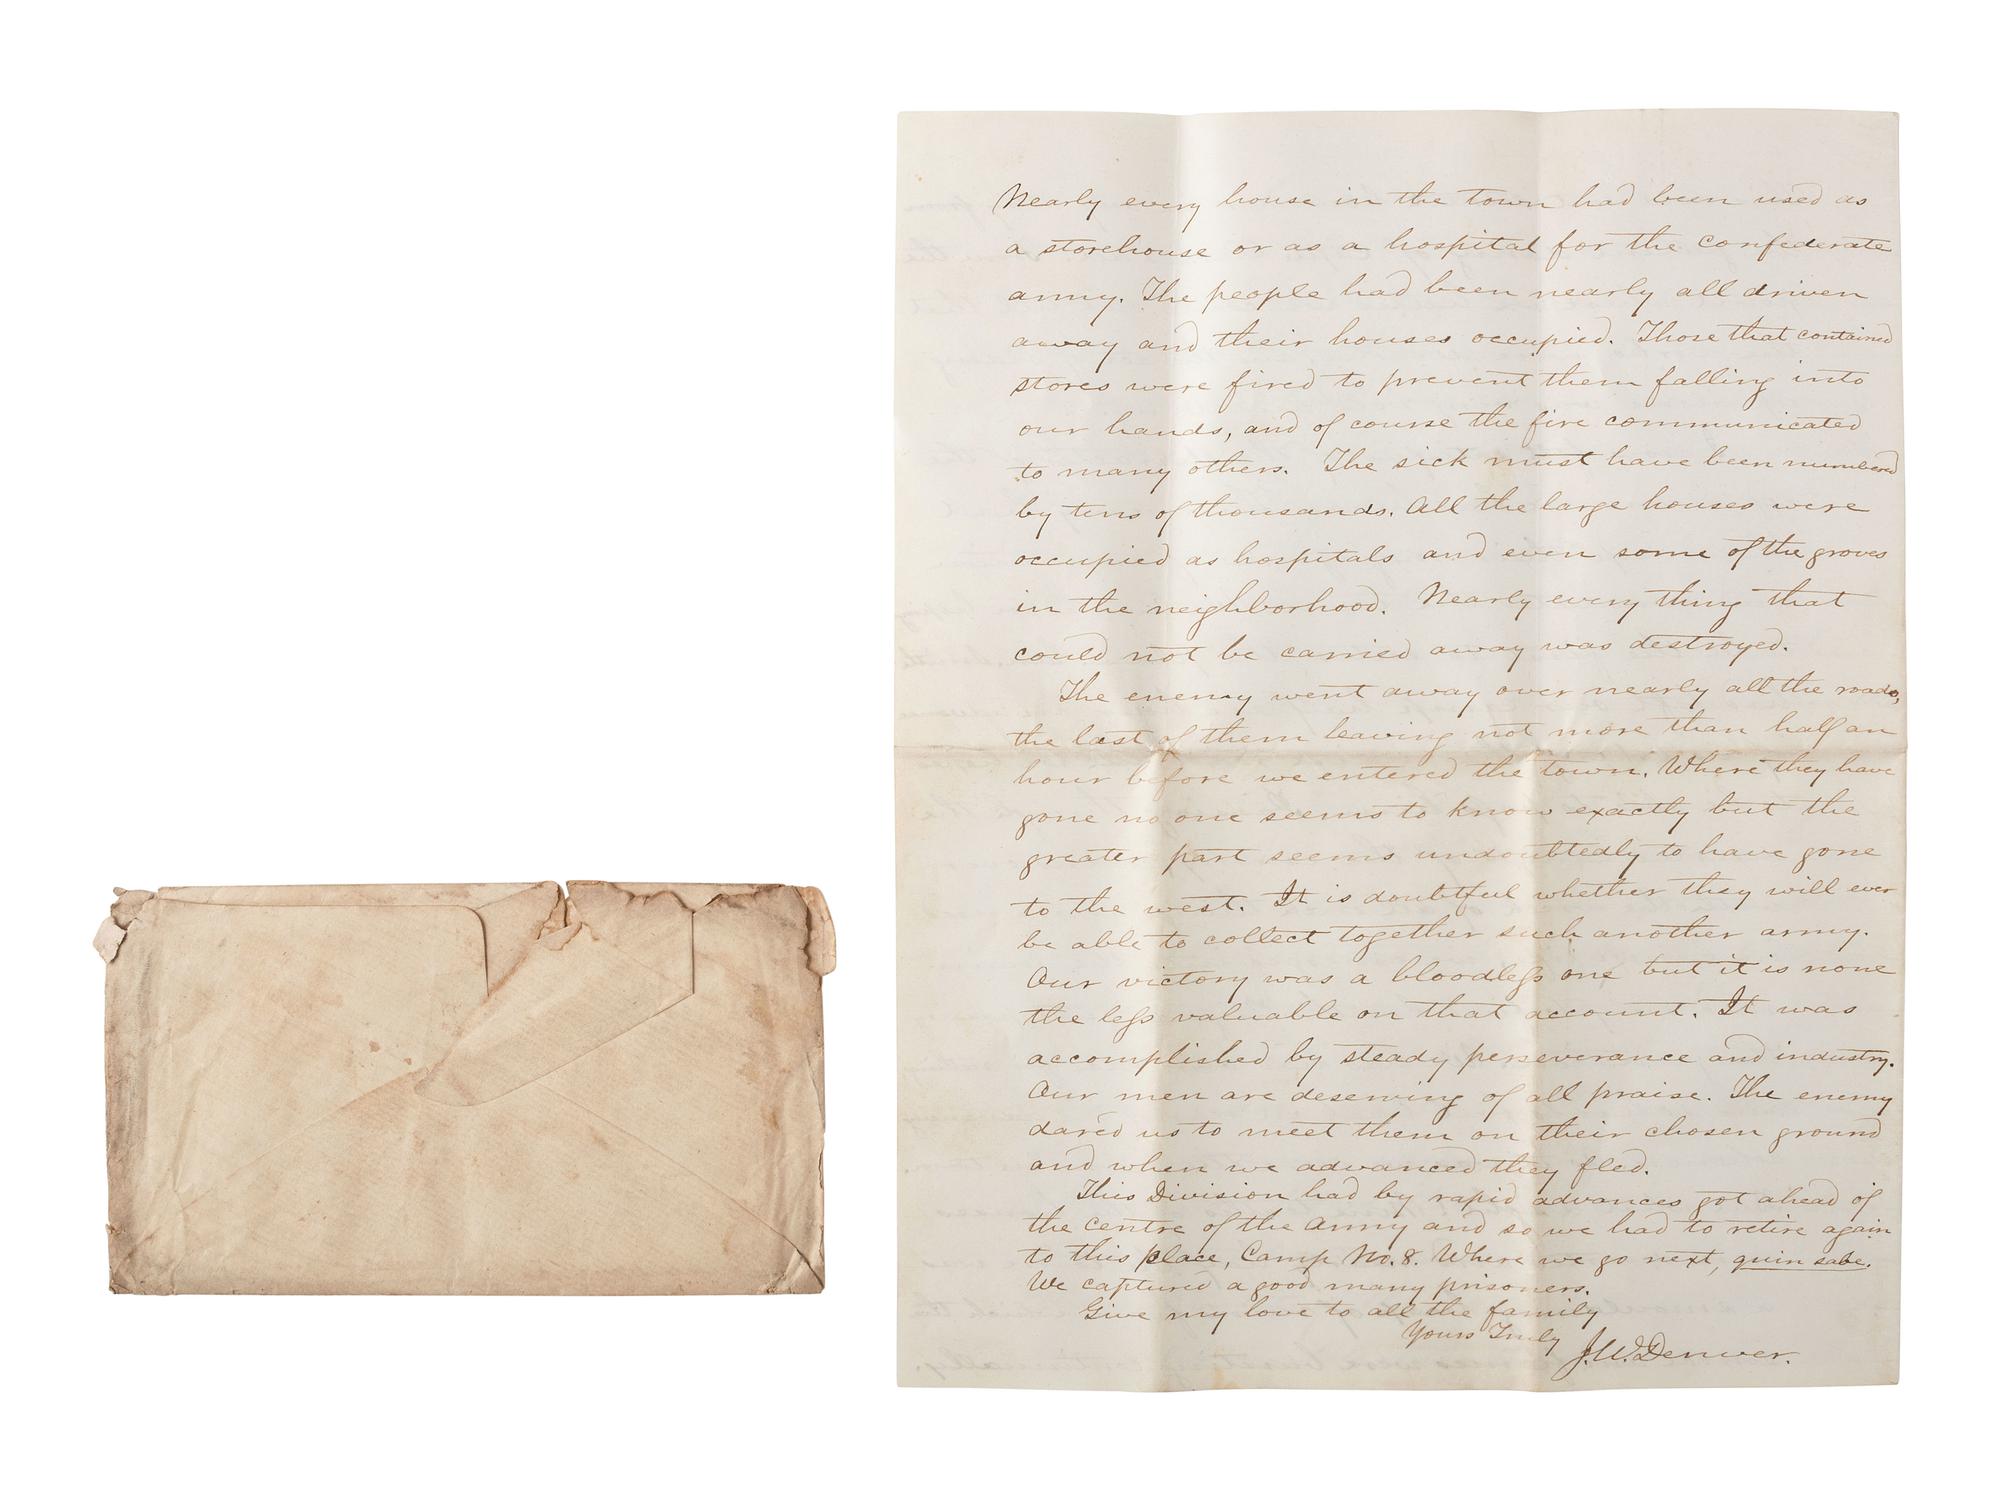 Nearly every house in the town had been used as
a storehouse or as a hospital for the confederate
army. The people had been nearly all driven
away and their houses occupied. Those that contained
stores were fired to prevent them falling into
our hands, and of course the fire communicated
to many others. The sick must have been numbered
by tens of thousands. All the large houses were
occupied as hospitals and even some of the groves
in the neighborhood. Nearly every thing that
could not be carried away was destroyed.
The enemy went away over nearly all the roads,
the last of them leaving not more than half an
hour before we entered the town. Where they have
gone no one seems to know exactly but the
greater part seems undoubtedly to have gone
to the west. It is doubtful whether they will ever
be able to collect together such another army.
Our victory was a bloodless one but it is none
the less valuable on that account. It was
accomplished by steady perseverance and industry.
Our men are deserving of all praise. The enemy
dared us to meet them on their chosen ground
and when we advanced they fled.
This Division had by rapid advances got ahead of
the centre of the army and so we had to retire again
to this place, Camp No. 8. Where we go next, quin sabe.
We captured a good many prisoners.
Give my love to all the family
Yours Truly
J.W. Denver.